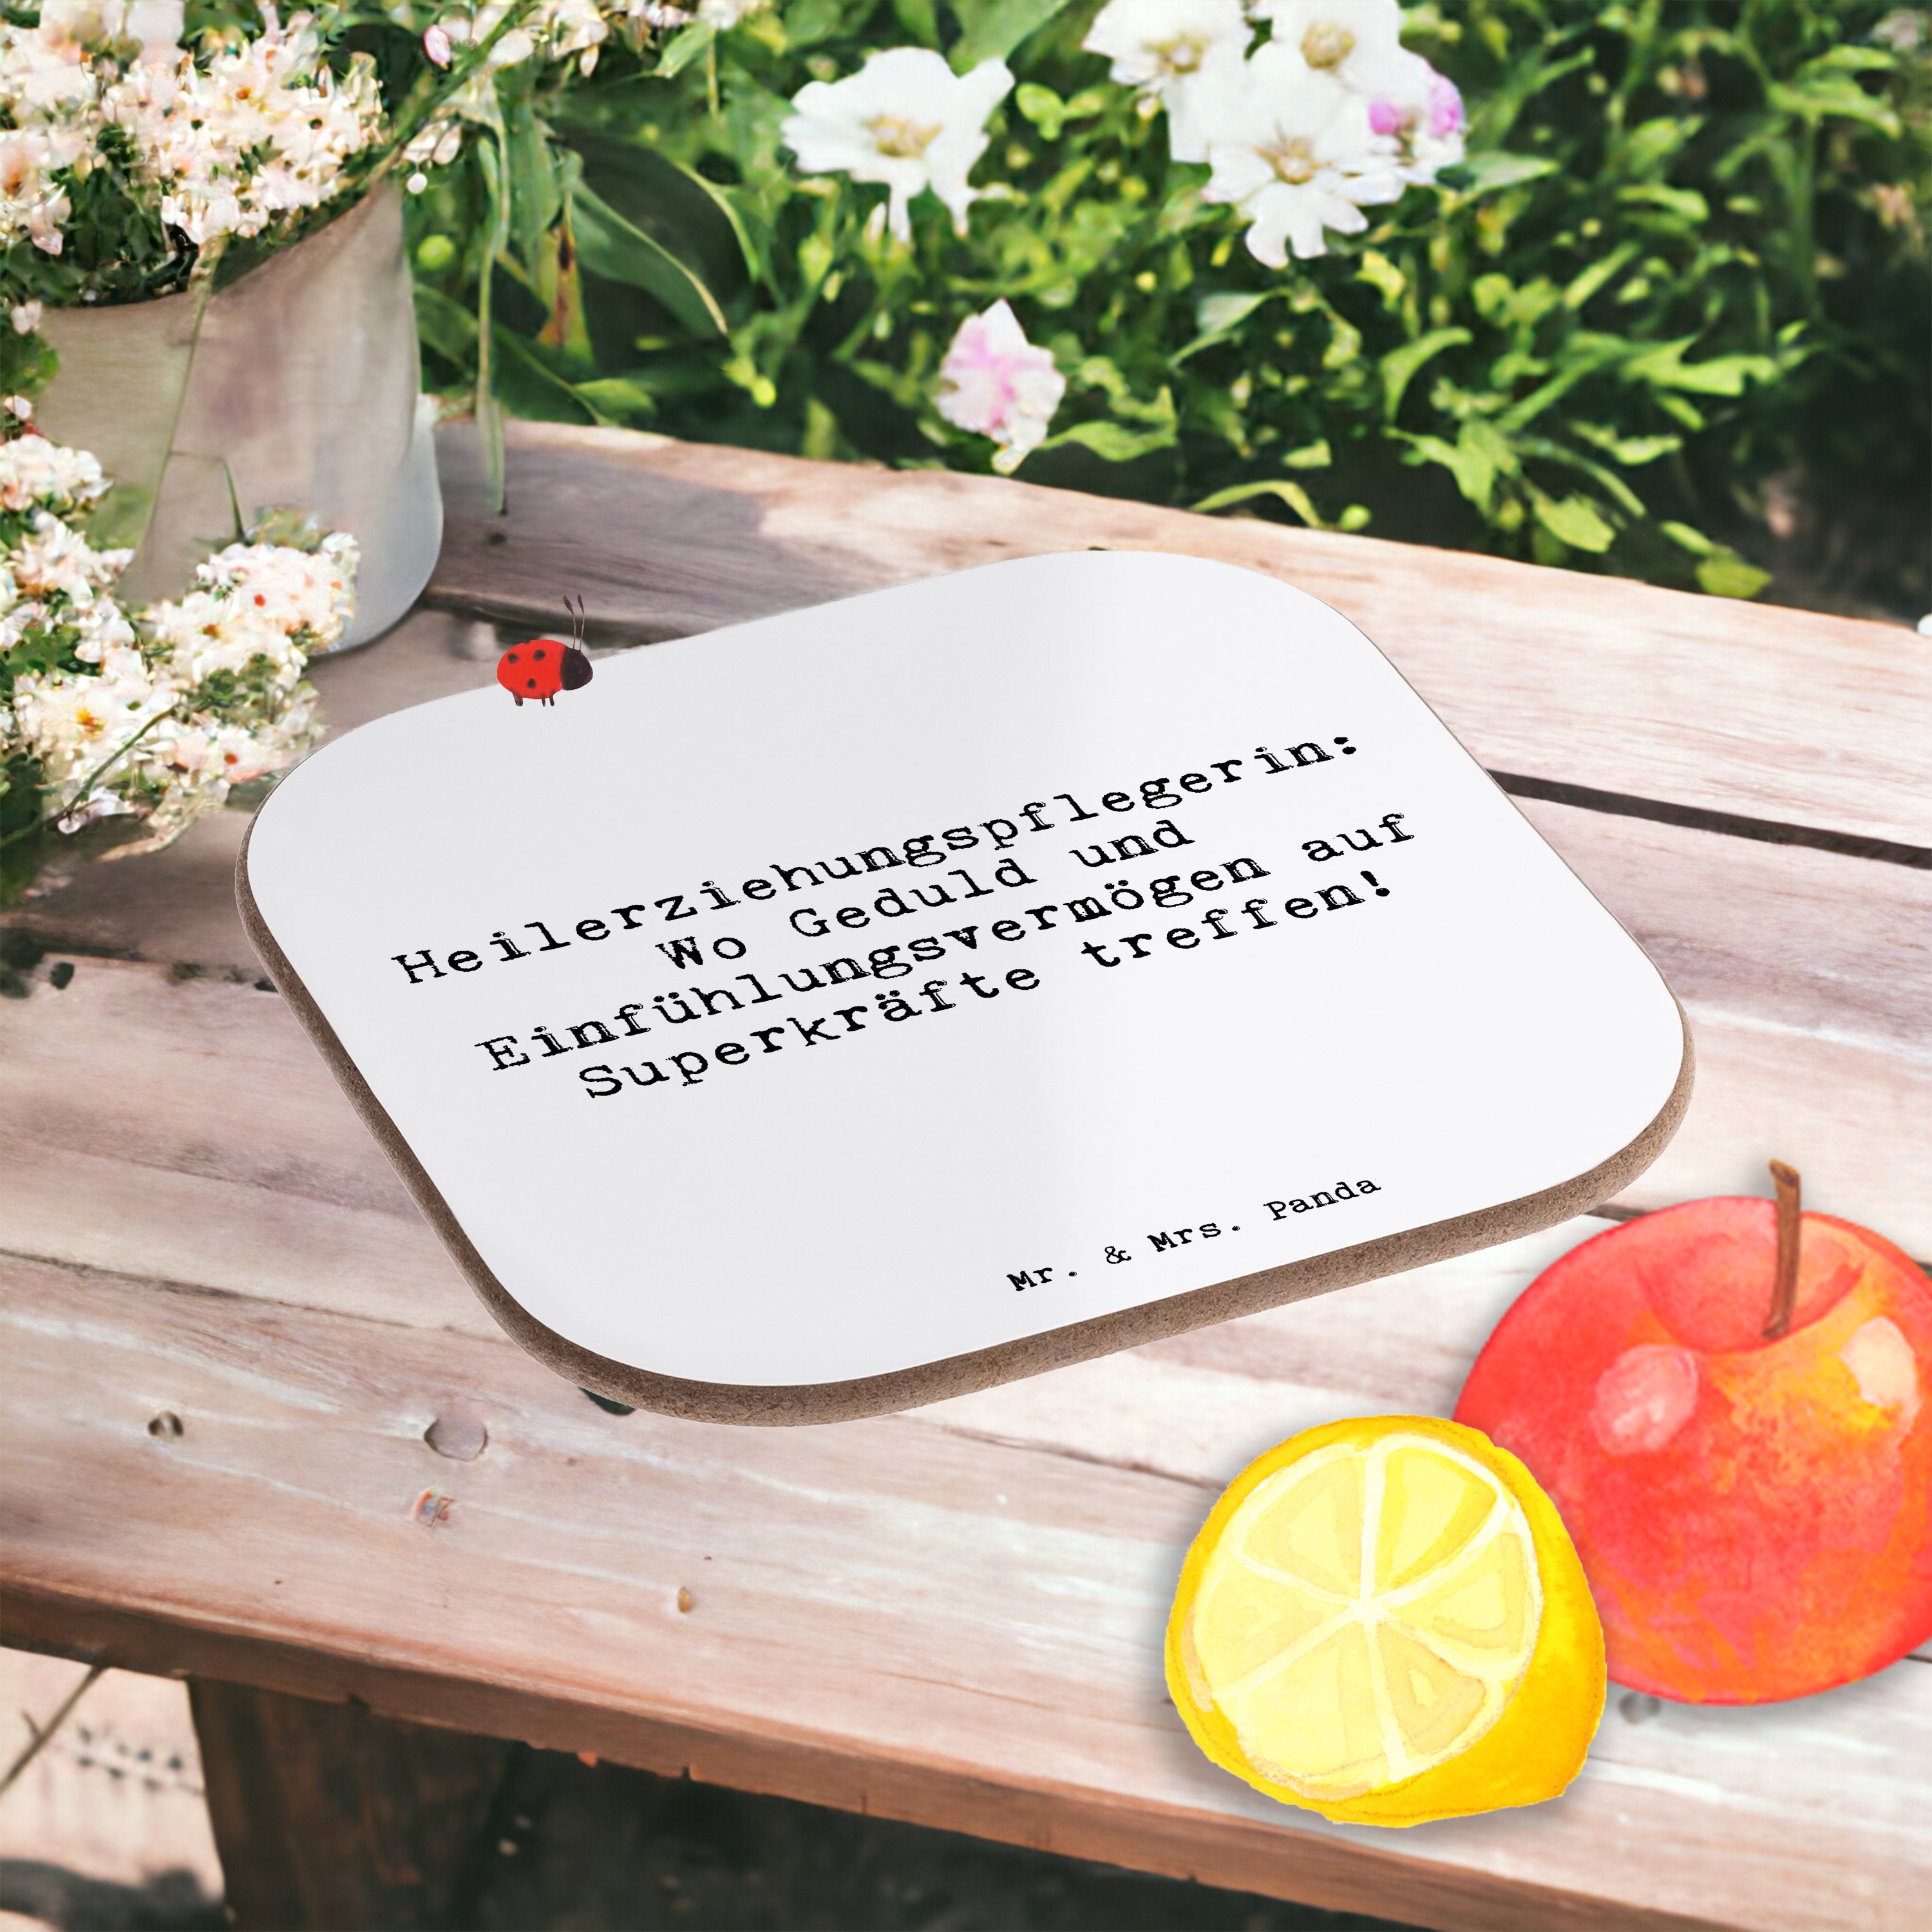 Heilerziehungspflegerin:
Wo Geduld und
Einfühlungsvermögen auf
Superkräfte treffen!
Mr. & Mrs. Panda